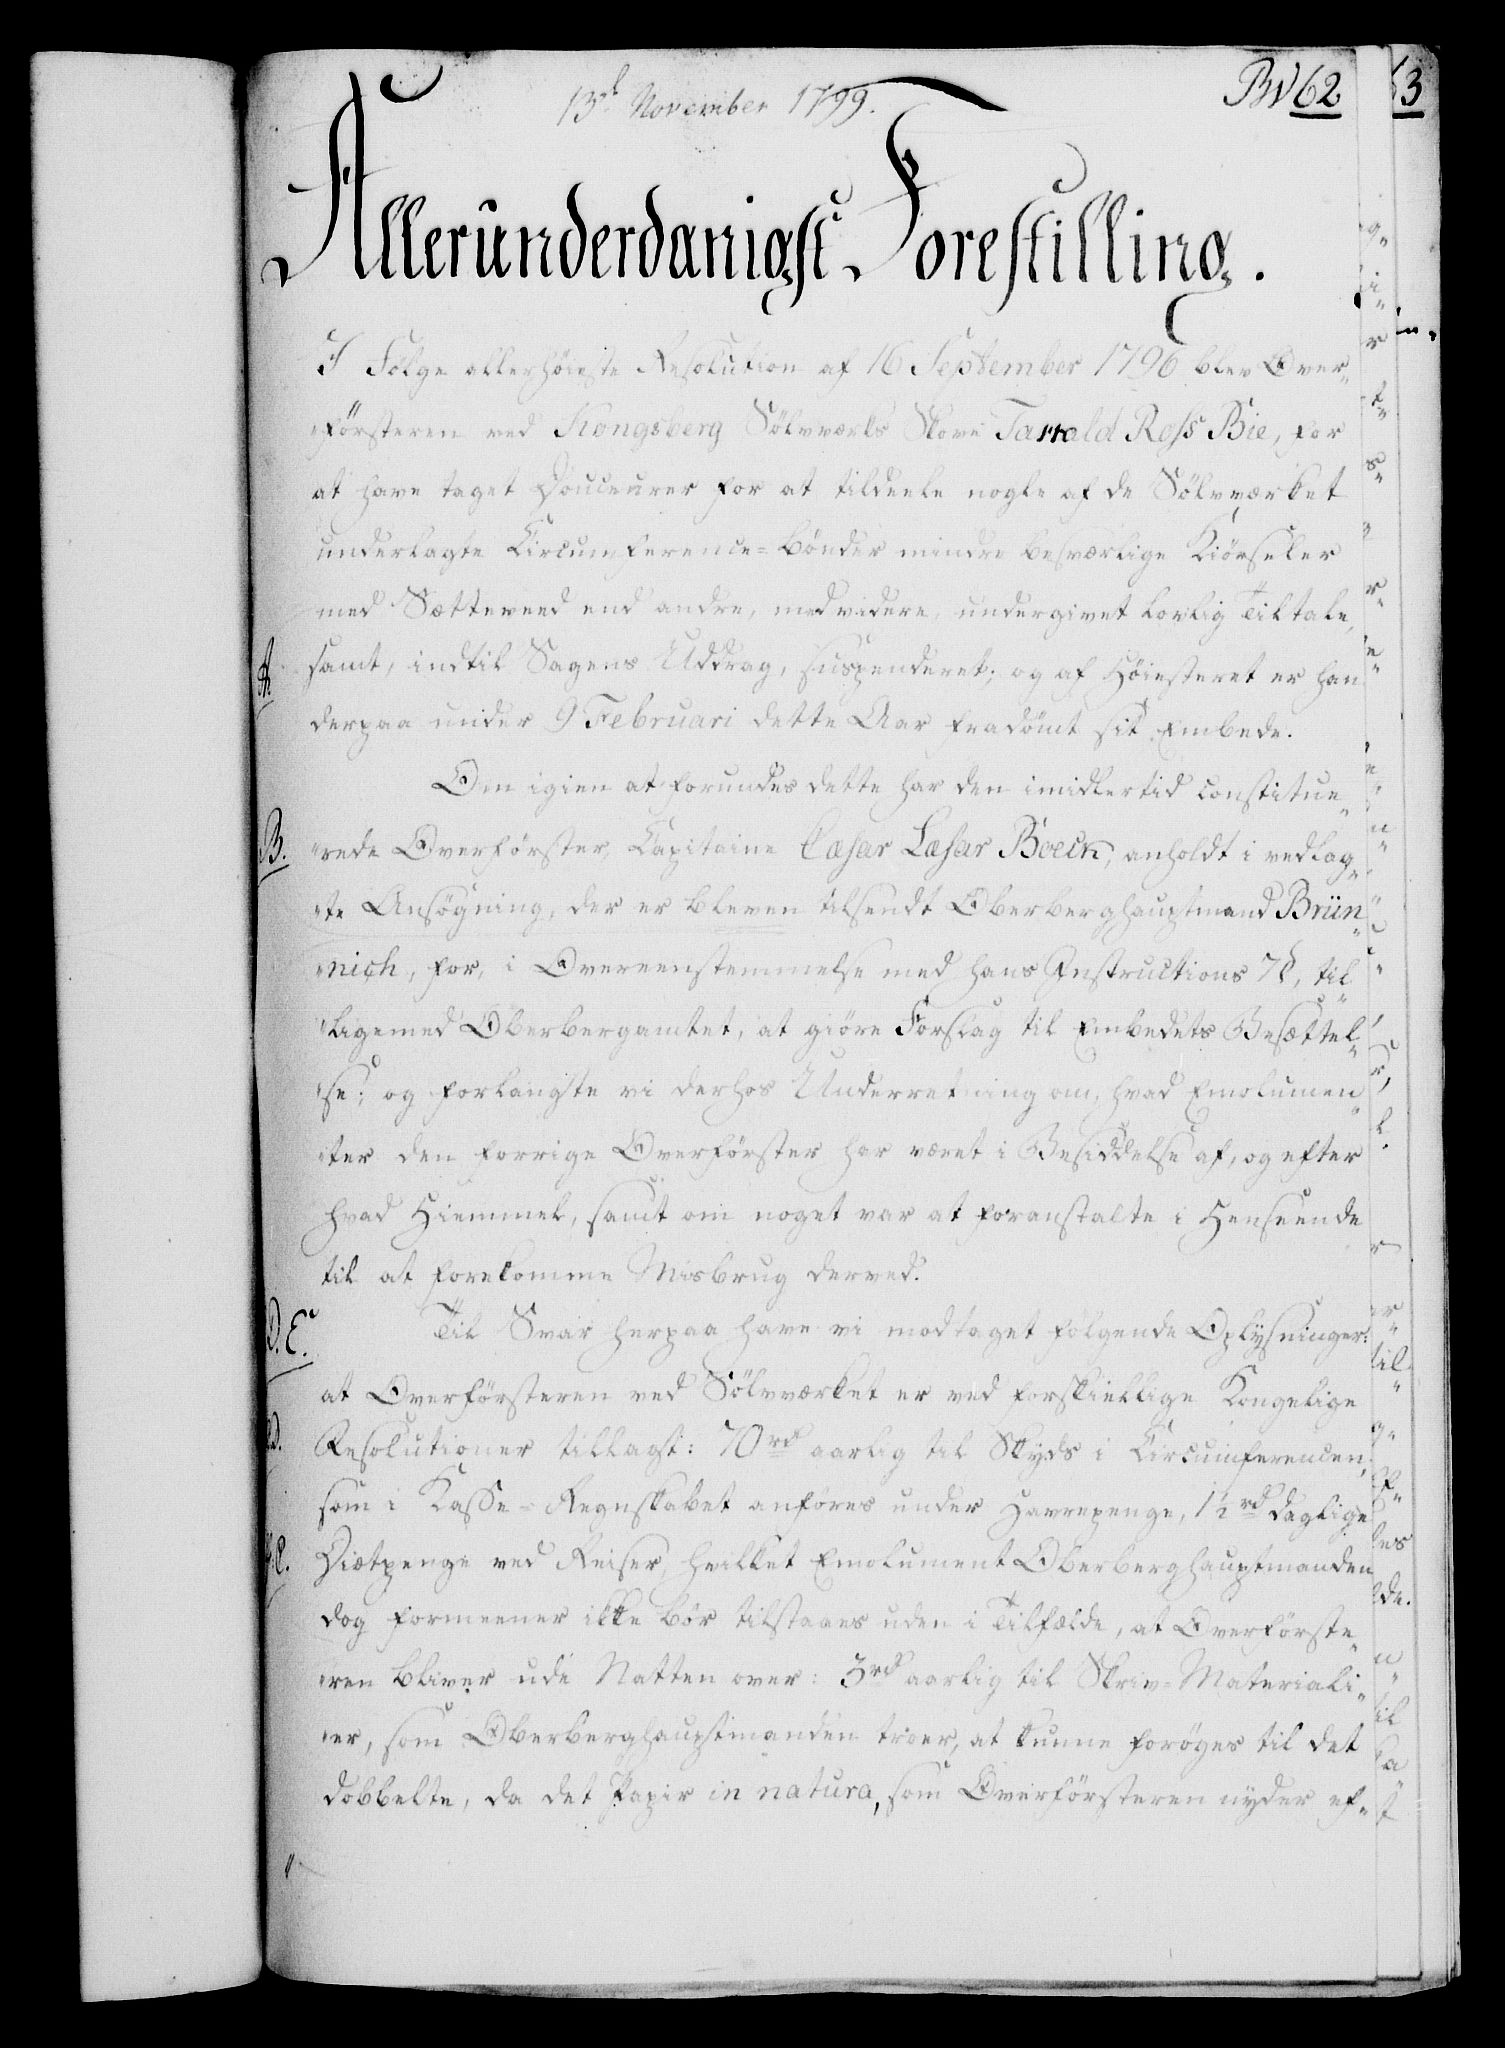 13de November 1799.
BN 62.
63
Allerunderdanigst Forestilling.
I Følge allerhöieste Resolution af 16 September 1796 blev Over-
försteren ved Kongsberg Sölvværks Skove Tarrald Ross Bie, for
at have taget Douceurer for at tildeele nogle af de Sölvværket
underlagte Circumference-bönder mindre besværlige Kiörseler
med Sætteveed end andre, medvidere, undergivet lovlig Tiltale,
A.
samt, indtil Sagens Uddrag, suspenderet; og af Höiesteret er han
derpaa under 9 Februari dette Aar fradömt sit Embede.
Om igien at forundes dette har den imidlertid constitue-
B.
rede Overförster, Capitaine Cæsar Læsar Böeck, anholdt i vedlag-
te Ansögning, der er bleven tilsendt Oberberghauptmand Brün-
nich, for, i Overeenstemmelse med hans Instructions 7 §, til-
ligemed Oberbergamtet, at giöre Forslag til Embedets Besættel-
se; og forlangte vi derhos Underretning om, hvad Emolumen-
ter den forrige Overförster har været i Besiddelse af, og efter
hvad Hiemmel, samt om noget var at foranstalte i Henseende
til at forekomme Misbrug derved.
D. E.
Til Svar herpaa have vi modtaget fölgende Oplysninger:
at Overförsteren ved Sölvværket er ved forskiellige Kongelige
Resolutioner tillagt: 70 rd aarlig til Skyds i Circumferencen,
som i Kasse-Regnskabet anföres under Havrepenge, 1½ rd daglige
Diætpenge ved Reiser, hvilket Emolument Oberberghauptmanden
dog formeener ikke bör tilstaaes uden i Tilfælde, at Overförste-
ren bliver ude Natten over: 3 rd aarlig til Skriv-Materiali-
er, som Oberberghauptmanden troer, at kunne foröges til det
dobbelte, da det Papir in natura, som Overförsteren nyder ef-